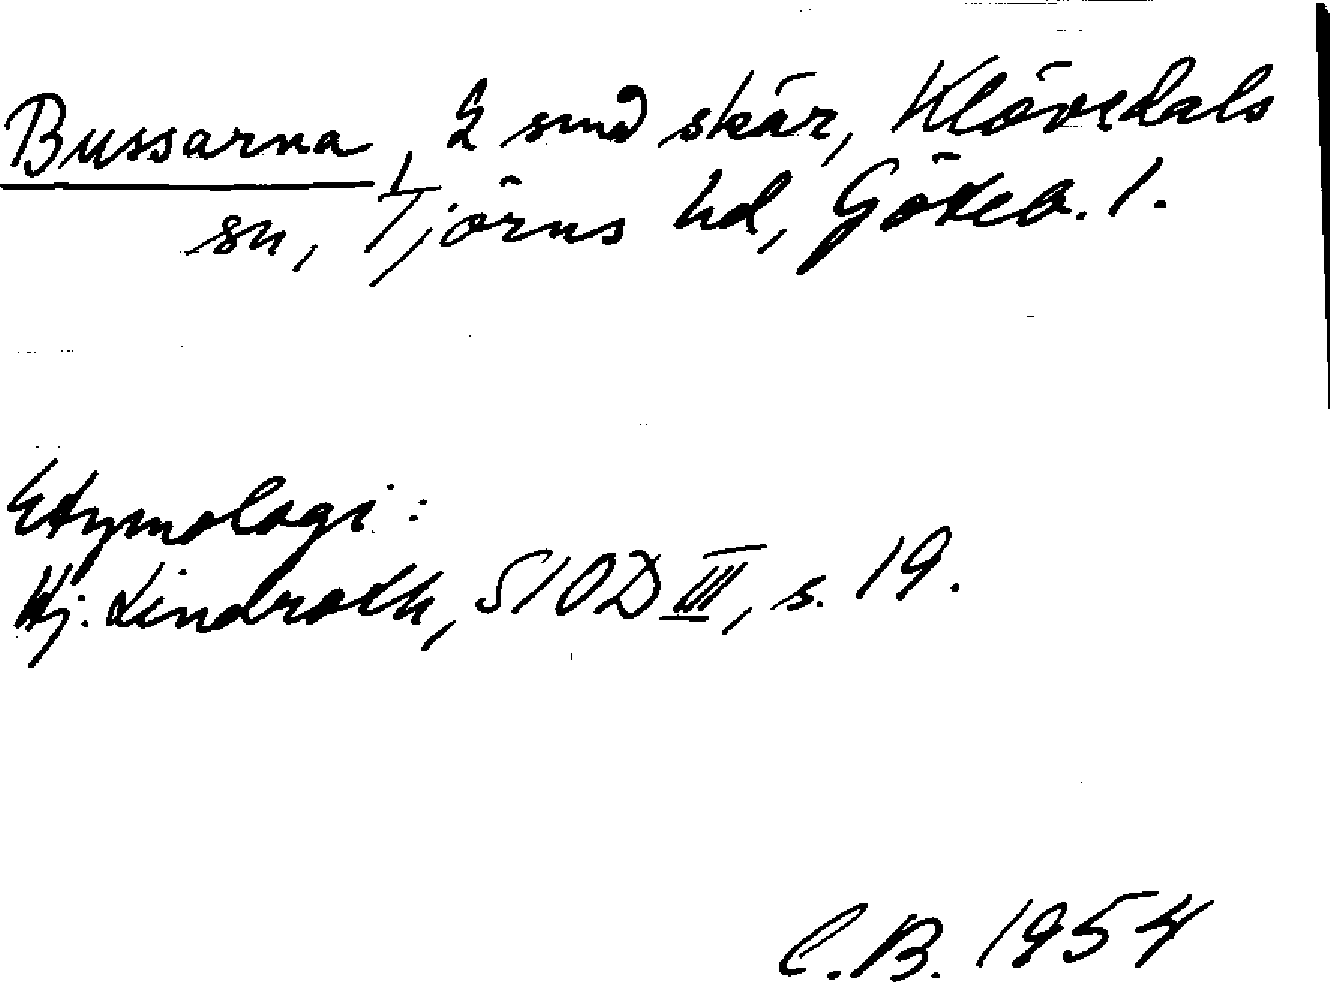 Bussarna, 2 små skär, Klövedals
sn, Tjörns hd, Göteb. l.
Etymologi:
Hj. Lindroth, SIOD III, s. 19.
C.B. 1954